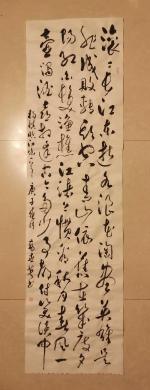 滚々長江東逝水浪花淘盡英雄是
非成敗轉頭空青山依舊在幾度夕
陽紅白髮漁樵江渚上慣看秋月春風一
壺濁酒喜相逢古今多少事都付笑談中
楊慎臨江仙 庚子